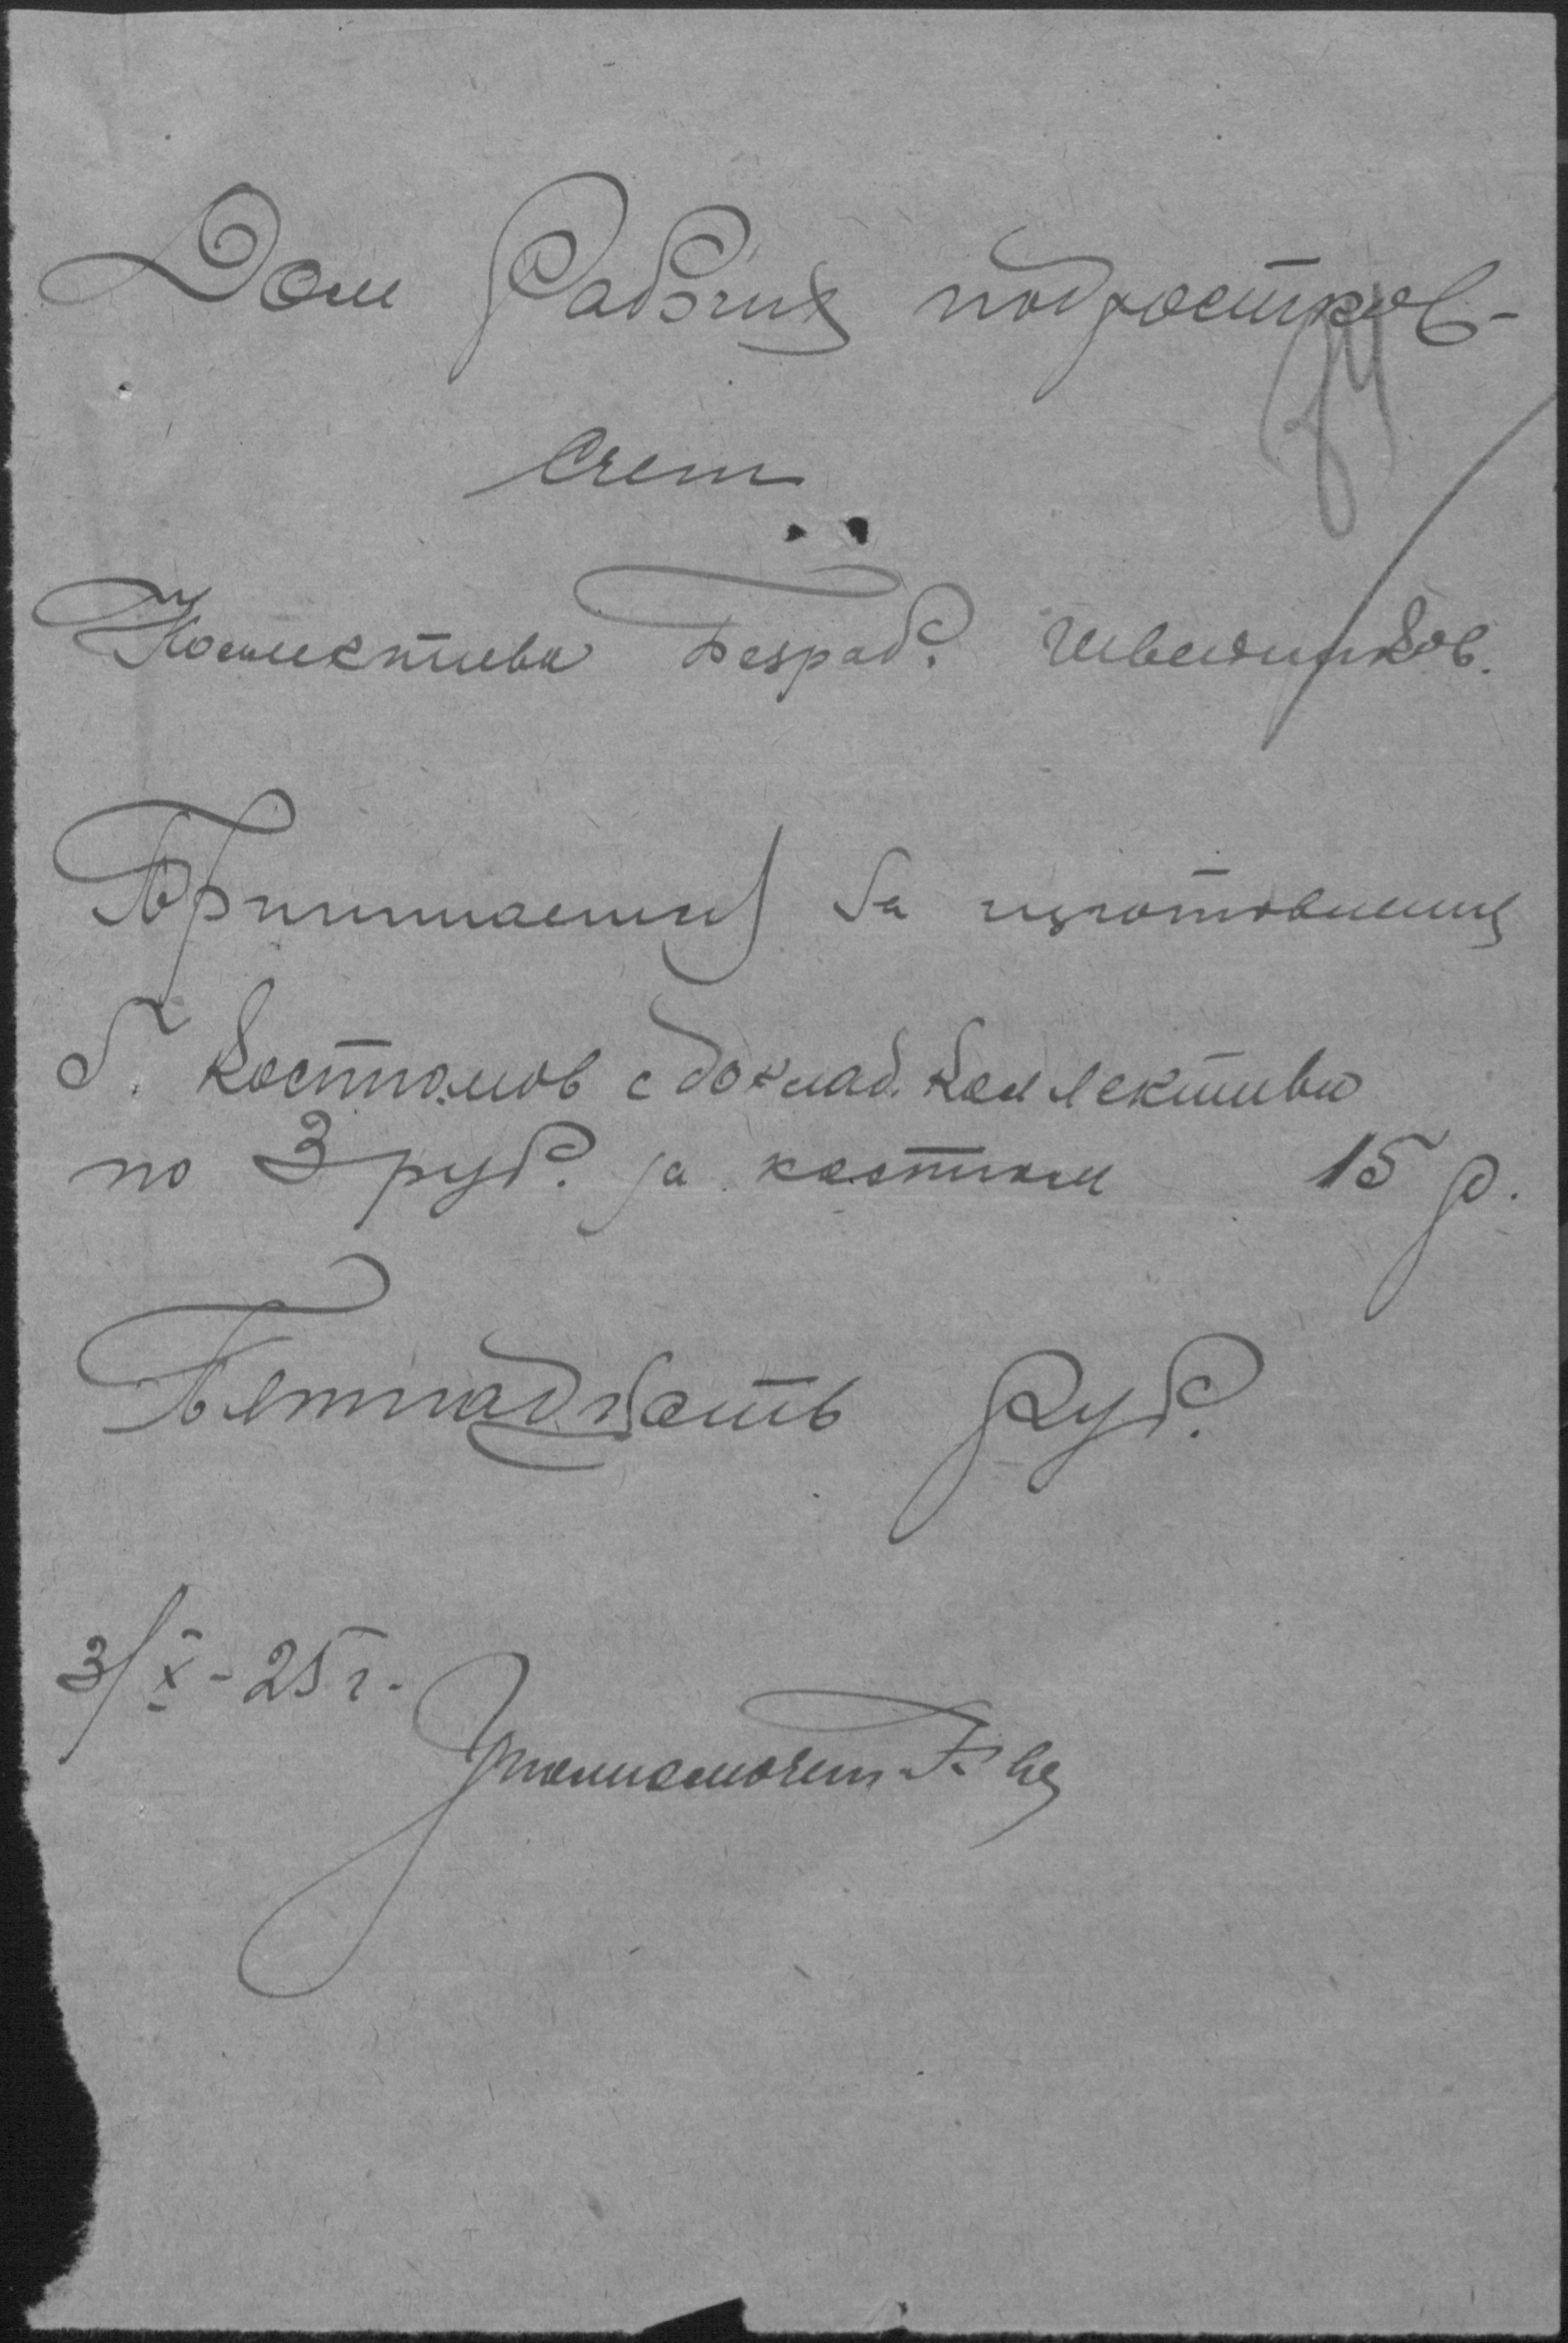 Дом Рабочих подростков
Счет
Коллектива Безраб. Швейников.
Причитается За изготовление
5. Костюмов с доклад. Коллектива
по 3 руб. за костюм 15 р.
Пятнадцать Руб.
3/X - 25 г.
Уполномочен.